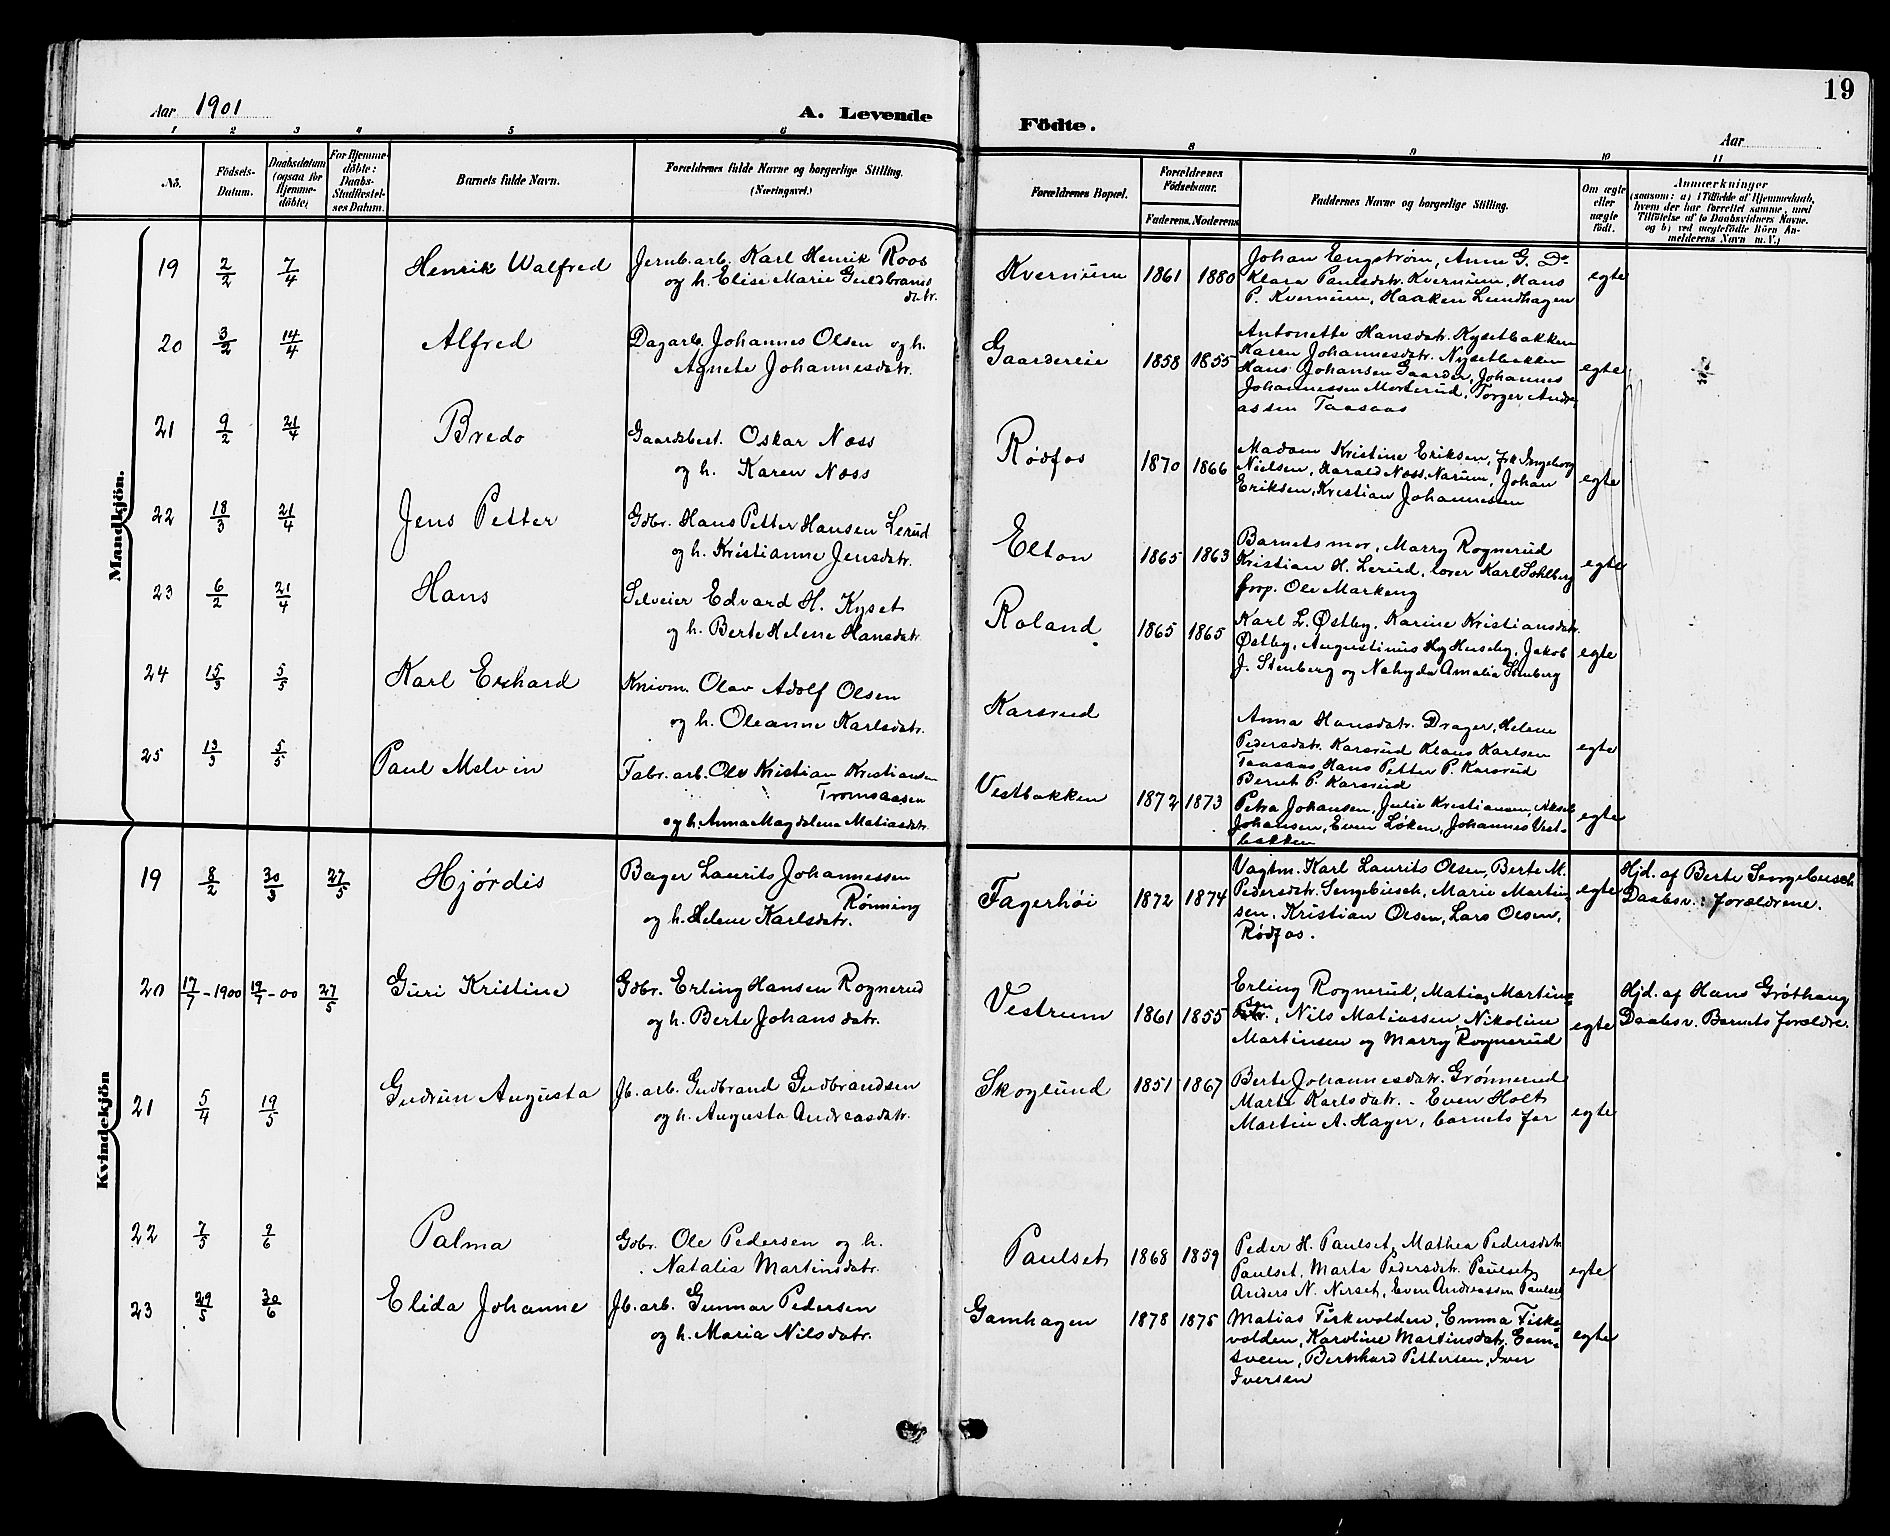 19
Aar 1901
A. Levende Födte.
Aar
1 2 3 4 5 6 8 9 10 11
No.
Födsels-Datum.
Daabsdatum (ogsaa for Hjemme-döbte)
For Hjemme-döbte: Daabs-Stadfæstel-ses Datum.
Barnets fulde Navn.
Forældrenes fulde Navne og borgerlige Stilling. (Næringsvei.)
Forældrenes Bopæl.
Forældrenes Födselsaar.
Faderens. Moderens.
Faddernes Navne og borgerlige Stilling.
Om ægte eller uægte födt.
Anmærkninger
(saasom: a) i Tilfælde af Hjemmedaab, hvem der har forrettet samme, med Tilföielse af to Daabsvidners Navne, og b) ved uægtefödte Börn An-melderens Navn m. V.)
Mandkjön.
19 2/2 7/4 Henrik Walfred
Jernb. arb. Karl Henrik Roos
og h. Elise Marie Guldbrands
datr.
Kvernum 1861 1880
Johan Engstrøm, Anne G. Do
Klara Paulsdatr. Kvernum, Hans
P. Kvernum, Haaken Lundhagen
egte
20 3/2 14/4 Alfred
Dagarb. Johannes Olsen og h.
Agnete Johannesdatr.
Gaardereie 1858 1855
Antonette Hansdatr. Kysetbakken
Karen Johannesdatr. Nysetbakken
Hans Johansen Gaarder, Johannes
Johannessen Morterud, Torger Andre-
assen Taasaas
egte
21 9/2 21/4 Bredo
Gaardsbest. Oskar Næss
og h. Karen Næss
Rødfos 1870 1866
Madam Kristine Eriksen, frk Ingeborg
Nielsen, Harald Næss, Narum, Johan
Eriksen, Kristian Johannesen
egte
22 18/3 21/4 Jens Petter
Gdbr. Hans Petter Hansen Lerud
og h. Kristianne Jensdatr.
Elton 1865 1863
Barnets mor, Marry Rognerud
Kristian H. Lerud, lærer Karl Sohlberg
forp. Ole Markeng
egte
23 6/2 21/4 Hans
Selveier Edvard H. Kyset
og h. Berte Helene Hansdatr.
Roland 1865 1865
Karl L. Østby, Karine Kristiansdatr.
Østby, Augustinus Huseby, Jakob
J. Stenberg og Amalia Stenberg
egte
24 15/3 5/5 Karl Erhard
Knivm. Olav Adolf Olsen
og h. Oleanne Karlsdatr.
Karsrud
Anna Hansdatr. Drager, Helene
Pedersdatr. Karsrud Klaus Karlsen
Taasaas Hans Petter P. Karsrud
Bernt P. Karsrud
egte
25 13/3 5/5 Paul Melvin
Fabr. arb. Ole Kristian Kristiansen
Tromsaasen
og h. Anna Magdalena Matiasdatr.
Vestbakken 1872 1873
Petra Johansen, Julie Kristiansen, Aksel
Johansen, Even Løken, Johannes Vest-
bakken
egte
Kvindekjön
19 8/2 30/3 27/5 Hjørdis
Bager Laurits Johannessen
Rønning
og h. Helene Karlsdatr.
Fagerhøi 1872 1874
Vagtm. Karl Laurits Olsen, Berte M.
Pedersdatr. Sengebusch, Marie Martin-
sen, Kristian Olsen, Lars Olsen,
Rødfos.
egte
Hjd. af Berte Sengebusch
Daabsv.: forældrene.
20 17/7-1900 19/7-00 27/5 Guri Kristine
Gdbr. Erling Hansen Rognerud
og h. Berte Johansdatr.
Vestrum 1861 1855
Erling Rognerud, Matias Martin-
sen, Nils Matiassen, Nikoline
Martinsen og Marry Rognerud
egte
Hjd. af Hans Grøthaug
Daabsv. Barnets forældre.
21 5/4 19/5 Gudrun Augusta
Jb. arb. Gudbrand Gudbrandsen
og h. Augusta Andreasdatr.
Skoglund 1851 1867
Berte Johannesdatr. Grønnerud
Marte Karlsdatr. - Even Holt
Martin A. Hager, barnets far
egte
22 7/5 9/6 Palma
Gdbr. Ole Pedersen og h.
Natalia Martinsdatr.
Paulset 1868 1859
Peder H. Paulset, Mathea Pedersdatr.
Paulset, Marte Pedersdatr. Paulset,
Anders N. Nerset, Even Andreassen Paulset
egte
23 29/5 30/6 Elida Johanne
Jb. arb. Gunnar Pedersen
og h. Maria Nilsdatr.
Gamhagen 1878 1875
Matias Fiskevolden, Emma Fiske-
volden, Karoline Martinsdatr. Gam-
sveen, Bernhard Pettersen, Iver
Iversen
egte